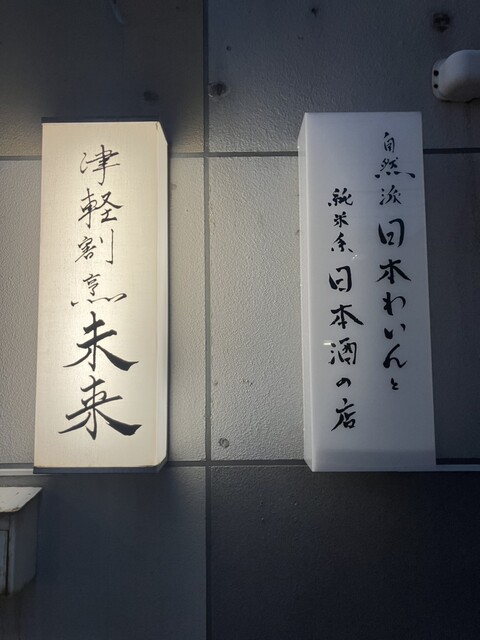 津軽割烹未来
自然派日本わいんと
純米系日本酒の店